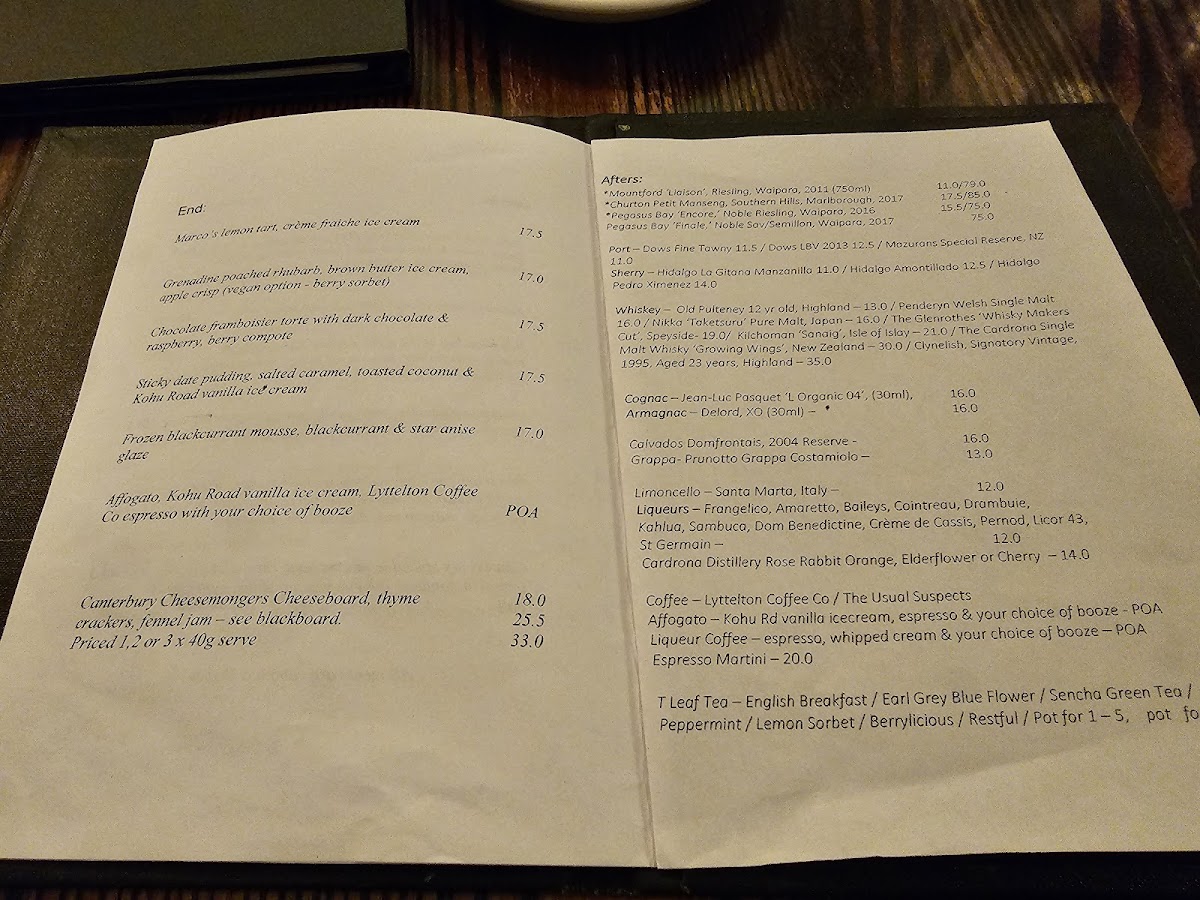 End:
Marco's lemon tart, crème fraiche ice cream 17.5
Grenadine poached rhubarb, brown butter ice cream, 17.0
apple crisp (vegan option - berry sorbet)
Chocolate framboisier torte with dark chocolate & 17.5
raspberry, berry compote
Sticky date pudding, salted caramel, toasted coconut & 17.5
Kohu Road vanilla ice cream
Frozen blackcurrant mousse, blackcurrant & star anise 17.0
glaze
Affogato, Kohu Road vanilla ice cream, Lyttelton Coffee
Co espresso with your choice of booze POA
Canterbury Cheesemongers Cheeseboard, thyme 18.0
crackers, fennel jam – see blackboard. 25.5
Priced 1,2 or 3 x 40g serve 33.0
Afters:
*Mountford 'Liaison', Riesling, Waipara, 2011 (750ml) 11.0/79.0
*Churton Petit Manseng, Southern Hills, Marlborough, 2017 17.5/85.0
*Pegasus Bay 'Encore,' Noble Riesling, Waipara, 2016 15.5/75.0
Pegasus Bay 'Finale,' Noble Sav/Semillon, Waipara, 2017 75.0
Port – Dows Fine Tawny 11.5 / Dows LBV 2013 12.5 / Mazurans Special Reserve, NZ
11.0
Sherry – Hidalgo La Gitana Manzanilla 11.0 / Hidalgo Amontillado 12.5 / Hidalgo
Pedro Ximenez 14.0
Whiskey – Old Pulteney 12 yr old, Highland – 13.0 / Penderyn Welsh Single Malt
16.0 / Nikka 'Taketsuru' Pure Malt, Japan – 16.0 / The Glenrothes 'Whisky Makers
Cut', Speyside- 19.0/ Kilchoman 'Sanaig', Isle of Islay – 21.0 / The Cardrona Single
Malt Whisky 'Growing Wings', New Zealand – 30.0 / Clynelish, Signatory Vintage,
1995, Aged 23 years, Highland – 35.0
Cognac – Jean-Luc Pasquet 'L Organic 04', (30ml), 16.0
Armagnac – Delord, XO (30ml) – 16.0
Calvados Domfrontais, 2004 Reserve - 16.0
Grappa- Prunotto Grappa Costamiolo – 13.0
Limoncello – Santa Marta, Italy – 12.0
Liqueurs – Frangelico, Amaretto, Baileys, Cointreau, Drambuie,
Kahlua, Sambuca, Dom Benedictine, Crème de Cassis, Pernod, Licor 43,
St Germain – 12.0
Cardrona Distillery Rose Rabbit Orange, Elderflower or Cherry – 14.0
Coffee – Lyttelton Coffee Co / The Usual Suspects
Affogato – Kohu Rd vanilla icecream, espresso & your choice of booze - POA
Liqueur Coffee – espresso, whipped cream & your choice of booze – POA
Espresso Martini – 20.0
T Leaf Tea – English Breakfast / Earl Grey Blue Flower / Sencha Green Tea /
Peppermint / Lemon Sorbet / Berrylicious / Restful / Pot for 1 – 5, pot fo